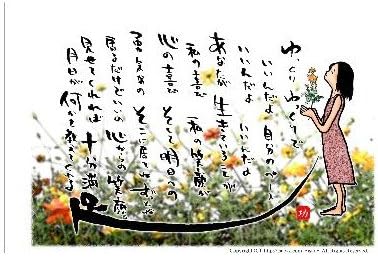 ゆっくり ゆっくりで
いいんだよ 自分のペース
いいんだよ いいんだよ
あなたが 生きていることが
私の喜び 私の笑顔が
心の喜び そして 明日への
勇気なの そこに居て
居るだけでいいの 心からの 笑顔
見せてくれれば 十分満足
月日が 何かを教えてくれる
功